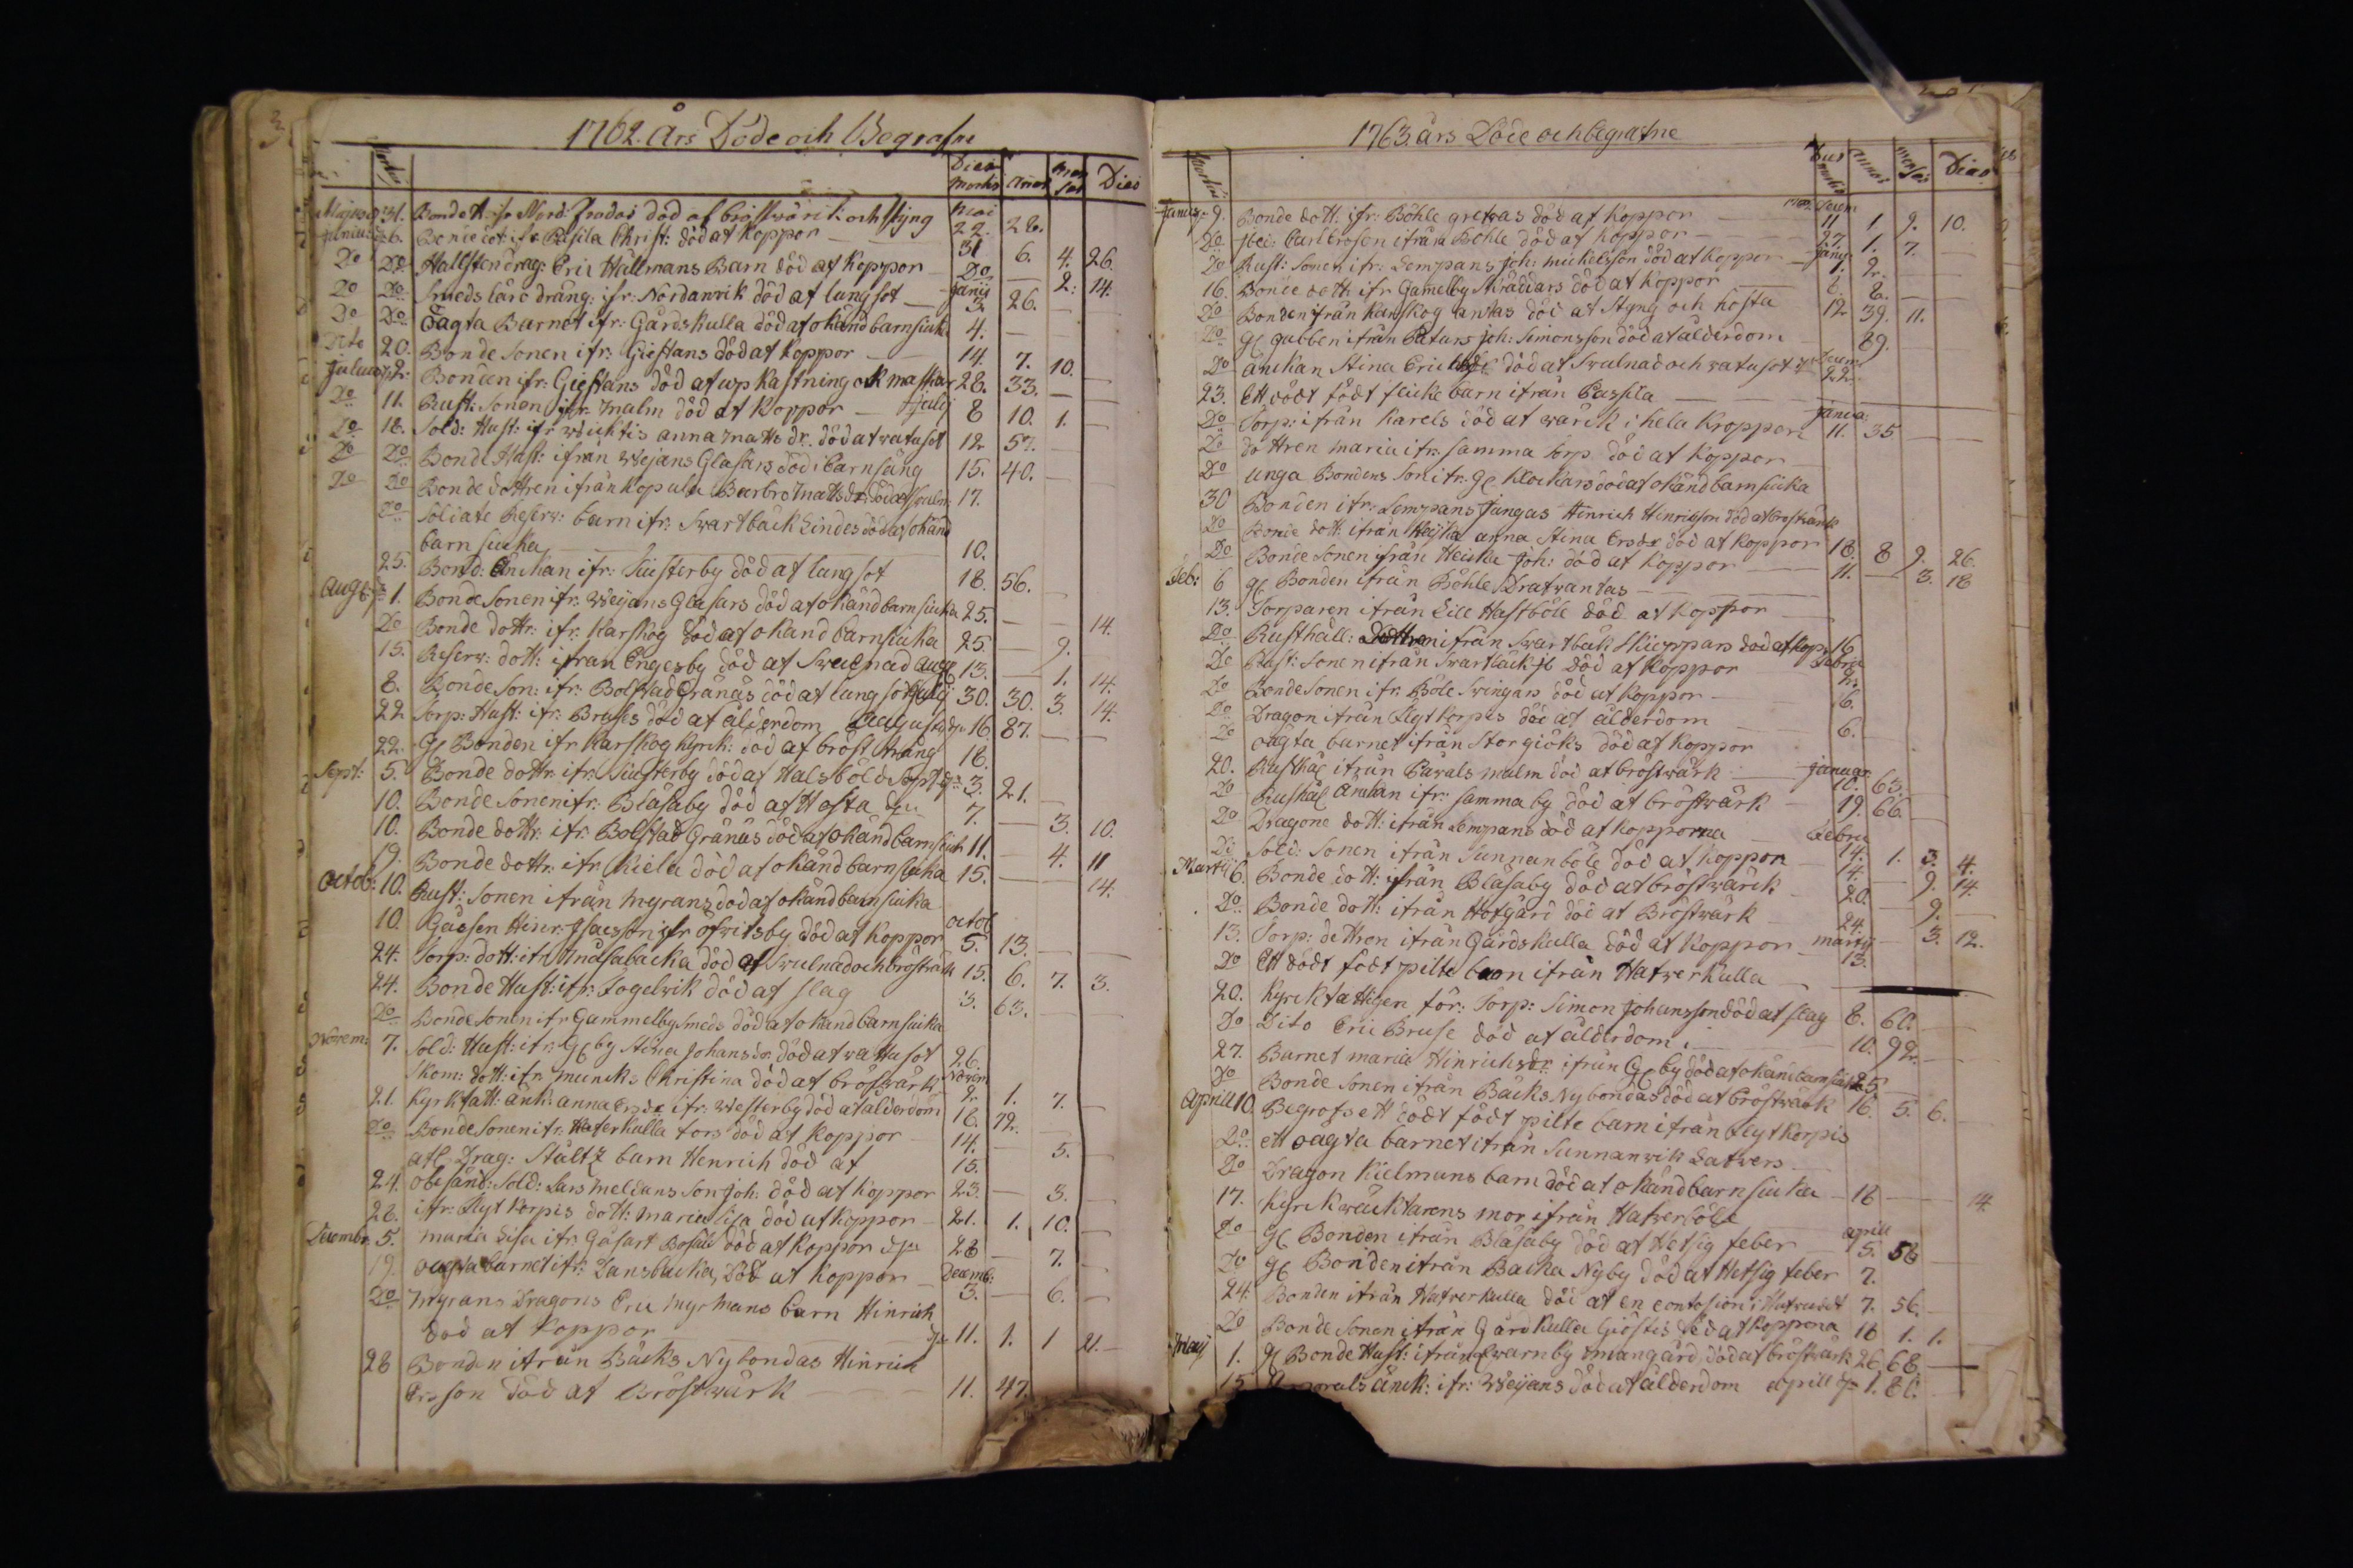 1762. Års Döde och Begrafne
Dies mortis Annos Menses Dies
Majus 31. Bonde H: ifr Nord: död af bröstwärk och styng Maj 22. 28.
Junius 6. Bonde dot: ifr Pasila Christ: död af Koppor 31 6. 4. 26.
Do Do Hallsten drag: Eric Hallmans Barn död af Koppor Do 2. 14.
Do Do Smeds läro dräng: ifr: Nordanwik död af lungsot Junii 3. 26.
Do Do Oagta Barnet ifr: Gårdskulla död af okänd barnsiuk 4.
Dito 20. Bonde Sonen ifr: Gieftans död af Koppor 14. 7. 10.
Julius 2. Bonden ifr: Gieftans död af upkastning ok maskar 28. 33.
Do 11. Rust: Sonen ifr: malm död af Koppor Julij 8 10. 1.
Do 18. Sold: Hust: ifr anna Matts dr. död af watusot 12 57.
Do Do Bonde Hust: ifrån Weijans Glasars död i Barnsäng 15. 40.
Do Do Bonde dottren ifrån Kopula Barbro Matts dr. död af swuln: 17.
Do Soldate Reserv: barn ifr: Swartbäck Lindes död af okänd
barn siuka 10.
25. Bond: Änckan ifr: Siusterby död af lungsot 18. 56.
Aug: 1. Bonde Sonen ifr: Weijans Glasars död af okänd barnsiuka 25. 14.
Do Bonde dottr: ifr: Karskog död af okand barnsiuka 25. 9.
15. Reserv: dott: ifran Engesby död af Swulnad aug 13. 1. 14.
8. Bonde Son: ifr: Bolstad Gränäs död af lungsot Julij 30. 30. 3. 14.
22 Torp: Hust: ifr: Bruses död af ålderdom Augusti 16. 87.
22. Gl Bonden ifr Karskog Kyrk: död af bröst träng 18.
Sept: 5. Bonde dottr: ifr: Siusterby död af Halsböld Sept 3. 21.
10. Bonde Sonen ifr: Blåsaby död af Hosta 7. 3. 10.
10. Bonde dottr: ifr: Bolstad Gränäs död af okänd barnsiuk 11. 4. 11
19. Bonde dottr: ifr: Kiela död af okänd barn siuka 15. 14.
Octob: 10. Rust: Sonen ifrån Myrans död af okänd barn siuka
10. Gåssen Hinr: Isacsson ifr Ofvitsby död af Koppor Octob 5. 13.
24. Torp: dott: ifr Snåsabacka död af Swulnad och bröstwärk 15. 6. 7. 3.
24. Bonde Hust: ifr: Fogelwik död af slag 3. 63.
Do Bonde Sonen ifr Gammelby Smeds död af okand barnsiuka
Novem: 7. Sold: Hust: ifr: Gl by Stina Johansdr död af wattusot 26.
Skom: dott: ifr Muncks Christina död af bröstwärk Novem 2. 1. 7.
21. Kyrkfatt: änk: anna Ersdr ifr: Westerby död af alderdom 18. 72.
Do Bonde Sonen ifr: Haferkulla Fors död af Koppor 14. 5.
afl. Drag: Ståltz barn Henrich död af 15.
24. obesänd: Sold: Lars Meldans Son Joh: död af Koppor 23. 3.
28. ifr: Flyt Korpis dott: Maria Lisa död af koppor 21. 1. 10.
Decembr. 5. maria Lisa ifr Gåsart död af Koppor 28 7.
19. oagta barnet ifr: Lansbacka, död af Koppor Decemb: 3. 6.
Do Myrans Dragons Eric Myrmans barn Hinrich
död af koppor 11. 1. 1 21.
28 Bonden ifrån Bäcks Nybondas Hinrich
Ersson död af Bröstwärk 11. 47.
1763. års Döde och begrafne
Dies mortis Annos Menses Dies
Janus: 9. Bonde dott: ifr: Böhle gretas död af Koppor Decem 11 1 9. 10.
Do Carl Ersson ifrån Böhle död af koppor 27. 1. 7.
Do Rust: Sonen ifr: Lempans Joh: Mickelsson död af Koppor Janu: 1. 2.
16. Bonde dottr ifr Gamelby Skräddars död af Koppor 8. 8.
Do Bonden ifrån Karskog antas död af Styng och hosta 12 39. 11.
Do Gl gubben ifrån Paturs Joh: Simonsson död af ålderdom 89.
Do änckan Stina Erics död af Swulnad och watusot Decem 22.
23. Ett dödt födt flicke barn ifrån Passila
Do Torp: ifrån Karels död af wärck i hela Kroppen Janua: 11. 35
Do dottren maria ifr: samma torp död af Koppor
Do unga Bondens Son ifr: Gl Klockars död af okänd barn siuka
30 Bonden ifr: Lempans Jungas Hinrich Henricsson död af bröstwärk
Do Bonde dott: ifrån Heijka anna Stina Ersdr död af Koppor 18. 8 9. 26.
Do Bonde Sonen ifrån Heicka Joh: död af Koppor 11. 3. 18
Feb: 6 gl Bonden ifrån Böhle Dratvantas
13. Torparen ifrån Lill Hastböle död af Koppor
Do Rusthåll: Dottren ifrån Swartbäck Skieppars död af Kop: 16
Do Rust: Sonen ifrån Swartbäck Jb död af Koppor Febru 2.
Do Bonde Sonen ifr: Böle Svingars död af Koppor 6.
Do Dragon ifrån Flyt Korpis död af ålderdom 6.
Do oagta barnet ifrån Storgiöks död af Koppor
20. Rusthål ifrån Pavals malm död af bröstwärk Januar 18. 63.
Do Rushål Änkan ifr: samma by död af bröstwärk 19. 66.
Do Dragone dott: ifrån Lempans död af Kopporna Febru
Do Sold: Sonen ifrån Sunnanböle död af koppor 14. 1. 3. 4.
Martij 6. Bonde dott: ifrån Blåsaby död af bröstwärck 14. 9. 14.
Do Bonde dott: ifrån Hofgård död af Bröstwärk 20. 9.
13. Torp: dottren ifrån Gårdskulla död af Koppor 24. martij 3. 12.
Do Ett dödt födt pilte barn ifrån Hafverkulla 13.
20. Kyrckfattigen för: Torp: Simon Johansson död af slag 8. 60.
Do Dito Eric Bruse död af ålderdom 10. 92.
27. Barnet maria Hinrichsdr ifrån Gl by död af okänd barnsiuka 25
Do Bonde Sonen ifrån Bäcks Nybondas död af bröstwärk 16. 5. 6.
Aprill 10. Begrofs ett dödt födt pilte barn ifrån Flyt Korpis
Do ett oagta barnet ifrån Sunnanwik Satvers.
Do Dragon Kielmans barn död af okänd barn siuka 18 14.
17. Kyrckwäcktarens mor ifrån Hafverböle
Do gl Bonden ifrån Blåsaby död af Hetsig feber Aprill 5. 58
Do gl Bonden ifrån Backa Nyby död af Hetsig feber 7.
24. Bonden ifrån Hafverkulla död af en contosion i Hufwudet 7. 56.
Do Bonde Sonen ifrån Gårdkulla Giöstes död af Koppona 18 1. 1.
Maij 1. gl Bonde Hust: ifrån Qwarnby död af bröstwärk 26 68
15 änck: ifr: Weijans död af ålderdom Aprill 1. 80.